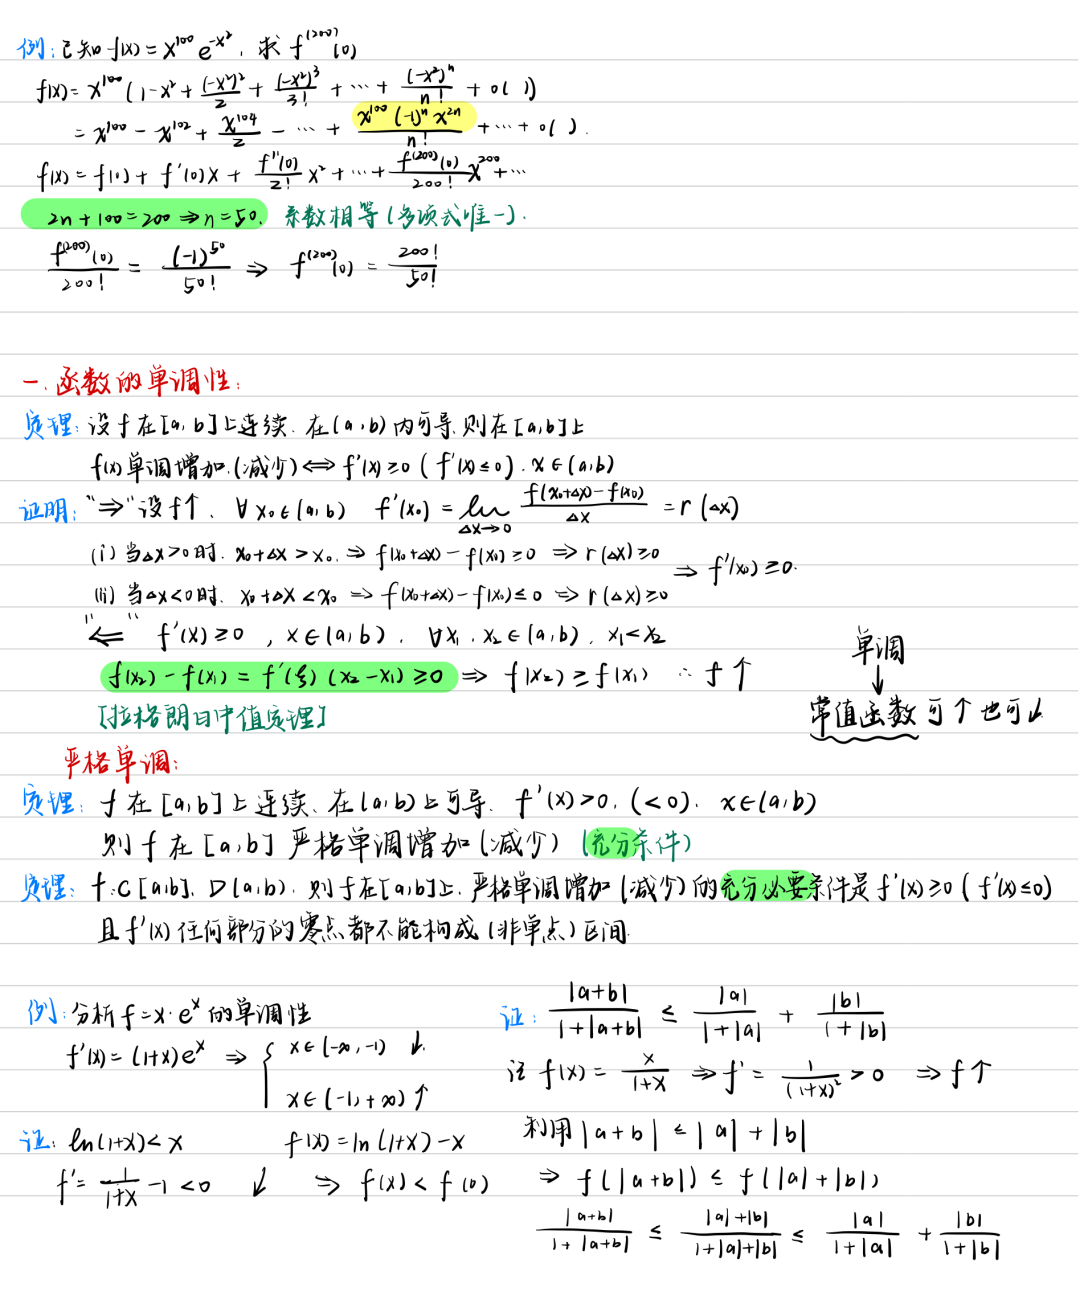 例:已知 f(x) = x^100 e^{-x²}, 求 f^(200)(0)
f(x) = x^100 (1 - x² + (-x²)²/2 + (-x²)³/3! + ⋯ + (-x²)^n/n! + o( ))
= x^100 - x^102 + x^104/2 - ⋯ + x^100 (-1)^n x^{2n}/n! + ⋯ + o( ).
f(x) = f(0) + f'(0)x + f''(0)/2! x² + ⋯ + f^(200)(0)/200! x^200 + ⋯
2n+100=200 ⇒ n=50. 系数相等(多项式唯一).
f^(200)(0)/200! = (-1)^50/50! ⇒ f^(200)(0) = 200!/50!
一. 函数的单调性:
定理: 设 f 在[a,b]上连续、在(a,b)内可导.则在[a,b]上
f(x)单调增加.(减少) ⇔ f'(x)≥0 (f'(x)≤0). x∈(a,b)
证明: "⇒"设f↑. ∀x₀∈(a,b) f'(x₀) = lim_{Δx→0} (f(x₀+Δx)-f(x₀))/Δx = r(Δx)
(i) 当Δx>0时. x₀+Δx > x₀. ⇒ f(x₀+Δx)-f(x₀)≥0 ⇒ r(Δx)≥0
⇒ f'(x₀)≥0.
(ii) 当Δx<0时. x₀+Δx < x₀ ⇒ f(x₀+Δx)-f(x₀)≤0 ⇒ r(Δx)≥0
"⇐" f'(x)≥0 , x∈(a,b). ∀x₁,x₂∈(a,b). x₁<x₂
f(x₂)-f(x₁) = f'(ξ)(x₂-x₁)≥0 ⇒ f(x₂)≥f(x₁) ∴ f↑
[拉格朗日中值定理]
单调
↓
常值函数可↑也可↓
严格单调:
定理: f 在[a,b]上连续、在(a,b)上可导. f'(x)>0. (<0). x∈(a,b)
则 f 在[a,b] 严格单调增加(减少) (充分条件)
定理: f:C[a,b]. D(a,b). 则f在[a,b]上.严格单调增加(减少)的充分必要条件是f'(x)≥0 (f'(x)≤0)
且f'(x)任何部分的零点都不能构成(非单点)区间.
例:分析f=x·e^x的单调性
f'(x) = (1+x)e^x ⇒ { x∈(-∞,-1) ↓.
x∈(-1,+∞)↑
证: ln(1+x)<x f(x)=ln(1+x)-x
f' = 1/(1+x) - 1 < 0 ↓ ⇒ f(x) < f(0)
证: |a+b|/(1+|a+b|) ≤ |a|/(1+|a|) + |b|/(1+|b|)
注 f(x) = x/(1+x) ⇒ f' = 1/(1+x)² > 0 ⇒ f↑
利用|a+b| ≤ |a|+|b|
⇒ f(|a+b|) ≤ f(|a|+|b|)
|a+b|/(1+|a+b|) ≤ (|a|+|b|)/(1+|a|+|b|) ≤ |a|/(1+|a|) + |b|/(1+|b|)